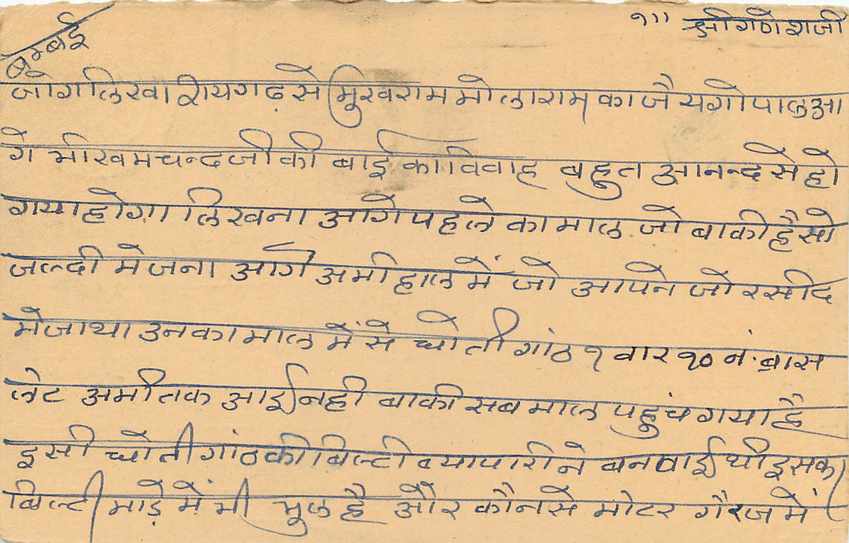 १।। श्री गणेशजी
बम्बई
जोग लिखा रायगढ़ से मुखराम भोलाराम का जै श्री गोपाल आ
गे भीखमचन्दजी की बाई का विवाह बहुत आनन्द से हो
गया होगा लिखना आगे पहले का माल जो बाकी है सो
जल्दी भेजना आगे अभी हाल में जो आपने जो रसीद
भेजा था उनका माल में से धोती गांठ १ वार १० नं.
अभी तक आई नही बाकी सब माल पहुंच गया है
इसी धोती गांठ की बिल्टी व्यापारी ने बनवाई थी इसका
बिल्टी भाड़े में भी भूल है और कौन से मोटर गैरज में